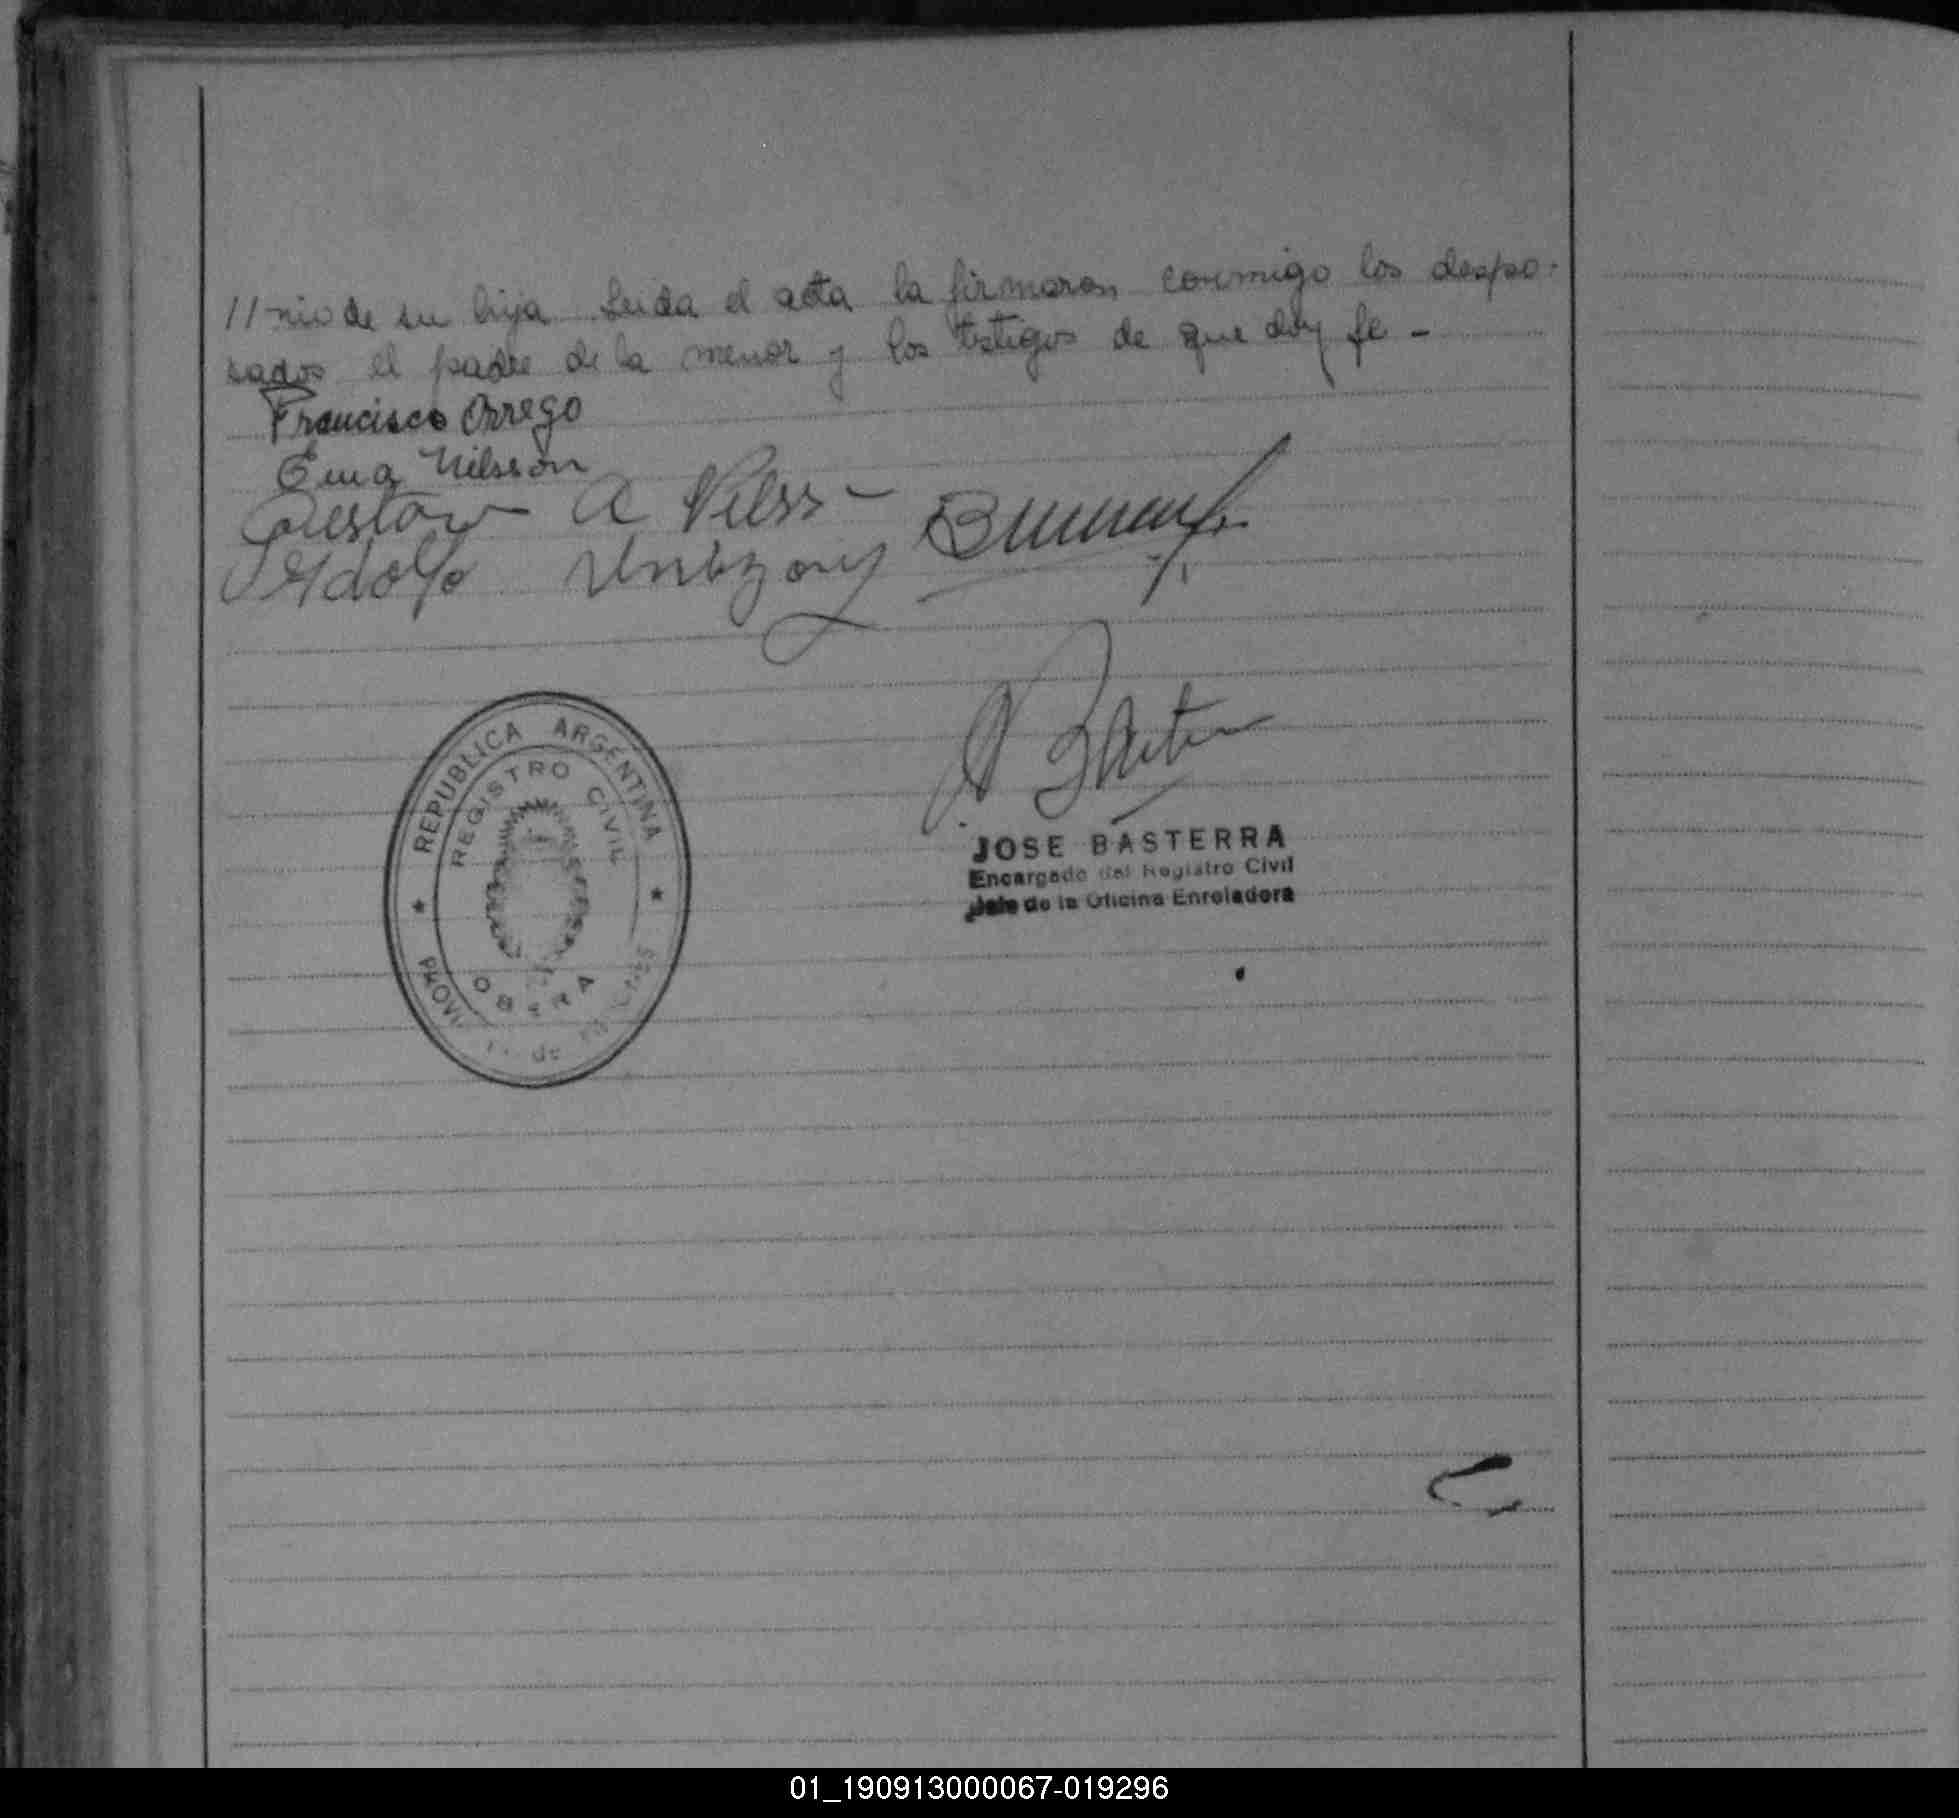 //nio de su hija. Leida el acta la firmaron conmigo los despo-
sados el padre de la menor y los testigos de que doy fe -
Francisco Orrego
Ema Nilsson
Gustav A Nilss
Adolfo
REPUBLICA ARGENTINA
REGISTRO CIVIL
OBERA
de
JOSE BASTERRA
Encargado del Registro Civil
Jefe de la Oficina Enroladora
01_190913000067-019296